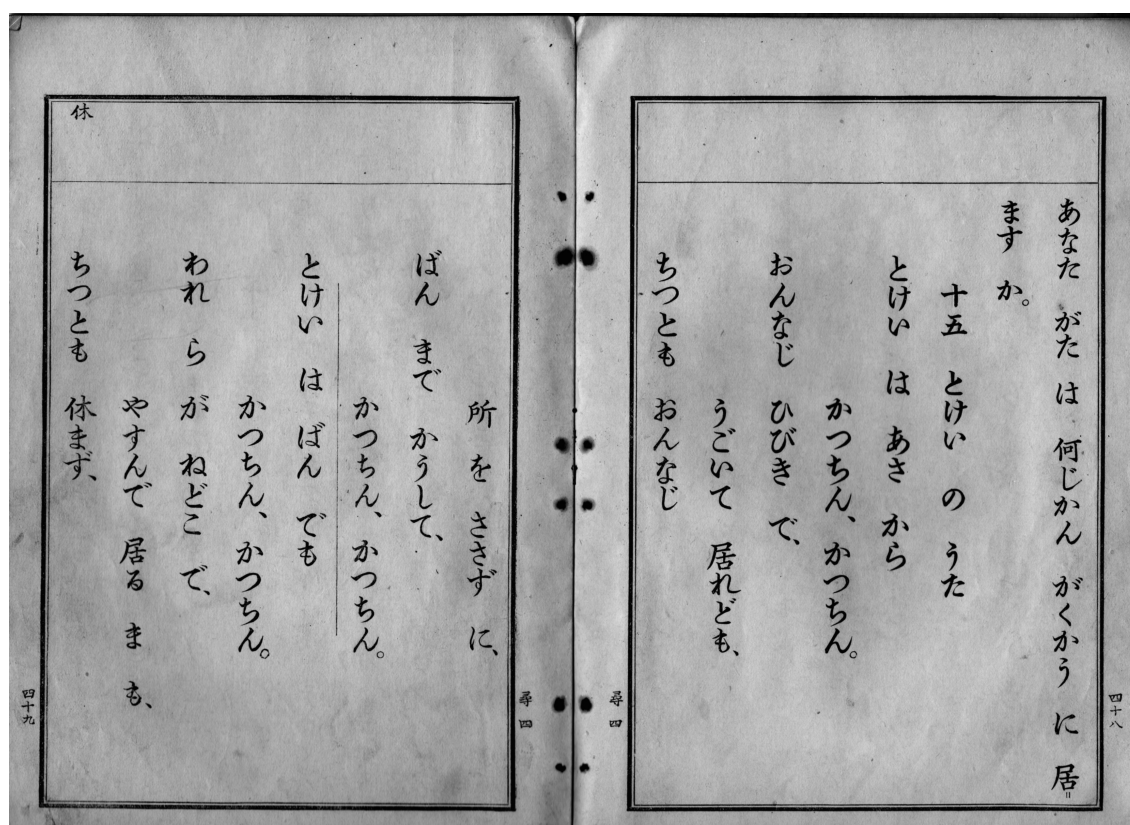 あなた がた は 何じかん がくかう に 居
ます か。
十五 とけい の うた
とけい は あさ から
かつちん、かつちん。
おんなじ ひびき で、
うごいて 居れども、
ちつとも おんなじ
四十八
尋四
休
所 を ささず に、
ばん まで かうして、
かつちん、かつちん。
とけい は ばん でも
かつちん、かつちん。
われ ら が ねどこ で、
やすんで 居る ま も、
ちつとも 休まず、
尋四
四十九